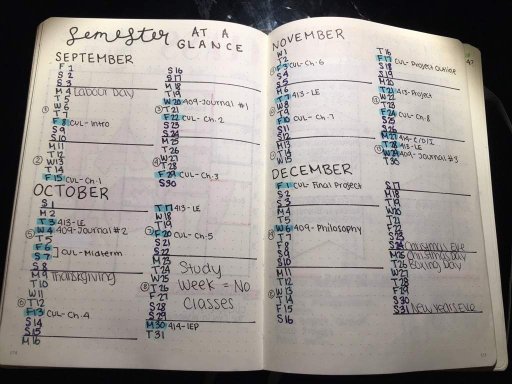 Semester AT A
GLANCE
SEPTEMBER
F 1
S 2
S 3
M 4 Labour Day
T 5
W 6
T 7
F 8 CUL-Intro
S 9
S 10
M 11
T 12
② W 13
T 14
F 15 CUL-Ch.1
S 16
M 18
T 19
W 20 409-Journal #1
T 21
F 22 CUL-Ch.2
S 23
S 24
M 25
T 26
W 27
T 28
F 29 CUL-Ch.3
S 30
OCTOBER
S 1
M 2
T 3 413-LE
W 4 409-Journal #2
T 5
F 6
S 7 CUL-Midterm
S 8
M 9 Thanksgiving
T 10
W 11
T 12
F 13 CUL-Ch.4
S 14
S 15
M 16
T 17 413-LE
W 18
T 19
F 20 CUL-Ch.5
S 21
S 22
M 23
T 24 Study
W 25 Week = No
T 26 Classes
F 27
S 28
S 29
M 30 414-IEP
T 31
NOVEMBER
W 1
T 2
F 3 CUL-Ch.6
S 4
S 5
M 6
T 7 413-LE
W 8
T 9
F 10 CUL-Ch.7
S 11
S 12
M 13
T 14
W 15
T 16
F 17 CUL-Project Outline
S 18
S 19
M 20
T 21 413-Project
W 22
T 23
F 24 CUL-Ch.8
S 25
S 26
M 27 414-C/D/I
T 28 413-LE
W 29 409-Journal #3
T 30
47
DECEMBER
F 1 CUL-Final Project
S 2
S 3
M 4
T 5
W 6 409-Philosophy
T 7
F 8
S 9
S 10
M 11
T 12
W 13
F 15
S 16
S 17
M 18
T 19
W 20
T 21
F 22
S 23
S 24 Christmas Eve
M 25 Christmas Day
T 26 Boxing Day
W 27
T 28
F 29
S 30
S 31 New Years Eve